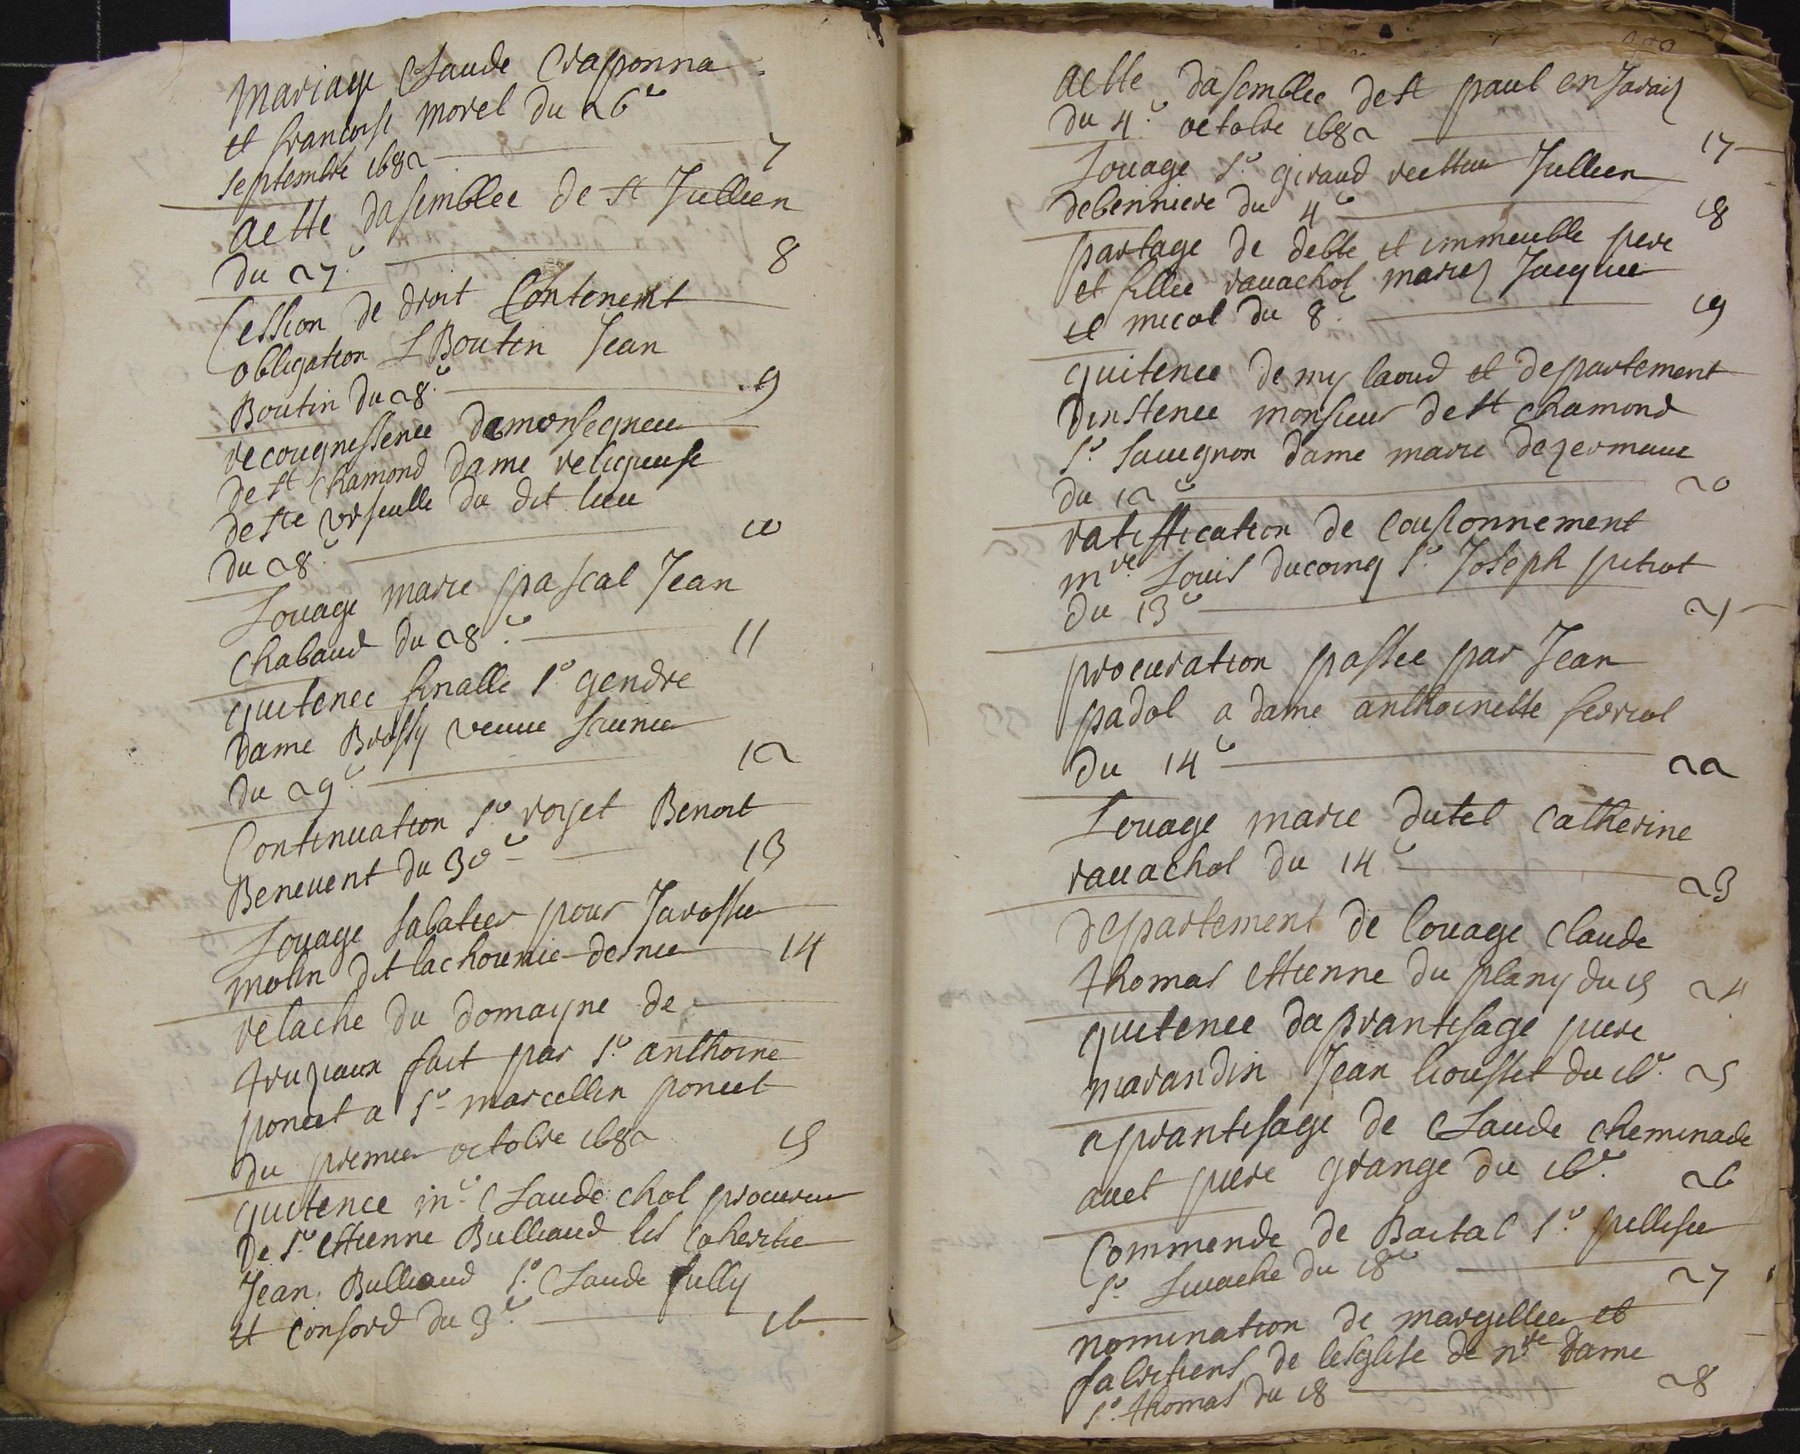 Mariage Claude Crapponna
et francoise morel du 26e
septembre 1682 7
acte dasemblee de st Jullien
du 27e 8
Cession de droit Contenent
obligation s Boutin Jean
Boutin du 28e 9
recougnessence de monsegneur
de st Chamond dame religieuse
de ste ursculle du dit lieu
du 28e 10
Louage marie pascal Jean
Chabaud du 28e 11
quitence finalle sr gendre
dame Brossy veuue
du 29e 12
Continuation sr royet Benoit
Beneuent du 30e 13
Louage sabatier pour Jarossier
molin dit lachomie dernier 14
relache du domayne de
fait par sr anthoine
poncet a sr marcellin poncet
du premier octobre 1682 15
quitence me Claude chol procureur
de sr ettienne Bulliaud les coheritier
Jean Bulliaud sr Claude fully
et consord du 3e 16
acte dasemblee de st paul en Jarais
du 4e octobre 1682 17
Louage sr giraud recteur Jullien
debenniere du 4e 18
partage de debte et immeuble pere
et fillie rauachol maries Jacquier
et micol du 8e 19
quitence de my laoud et departement
dinstence monsieur de st chamond
sr sauugnon dame marie
du 12e 20
ratiffication de Causionnement
mre Louis ducoing sr Joseph pitiot
du 13e 21
procuration passee par Jean
padol a dame anthoinette ferriol
du 14e 22
Louage marie dutel Catherine
rauachol du 14e 23
departement de louage Claude
thomas ettienne du plany du 15 24
quitence daprantisage piere
marandin Jean liousset du 16e 25
aprantisage de Claude cheminade
auet piere grange du 16e 26
Commende de Baital sr pellisie
sr Liuache du 18e 27
nomination de margellier et
fabritiens de lesglise de nre dame
sr thomas du 18 28